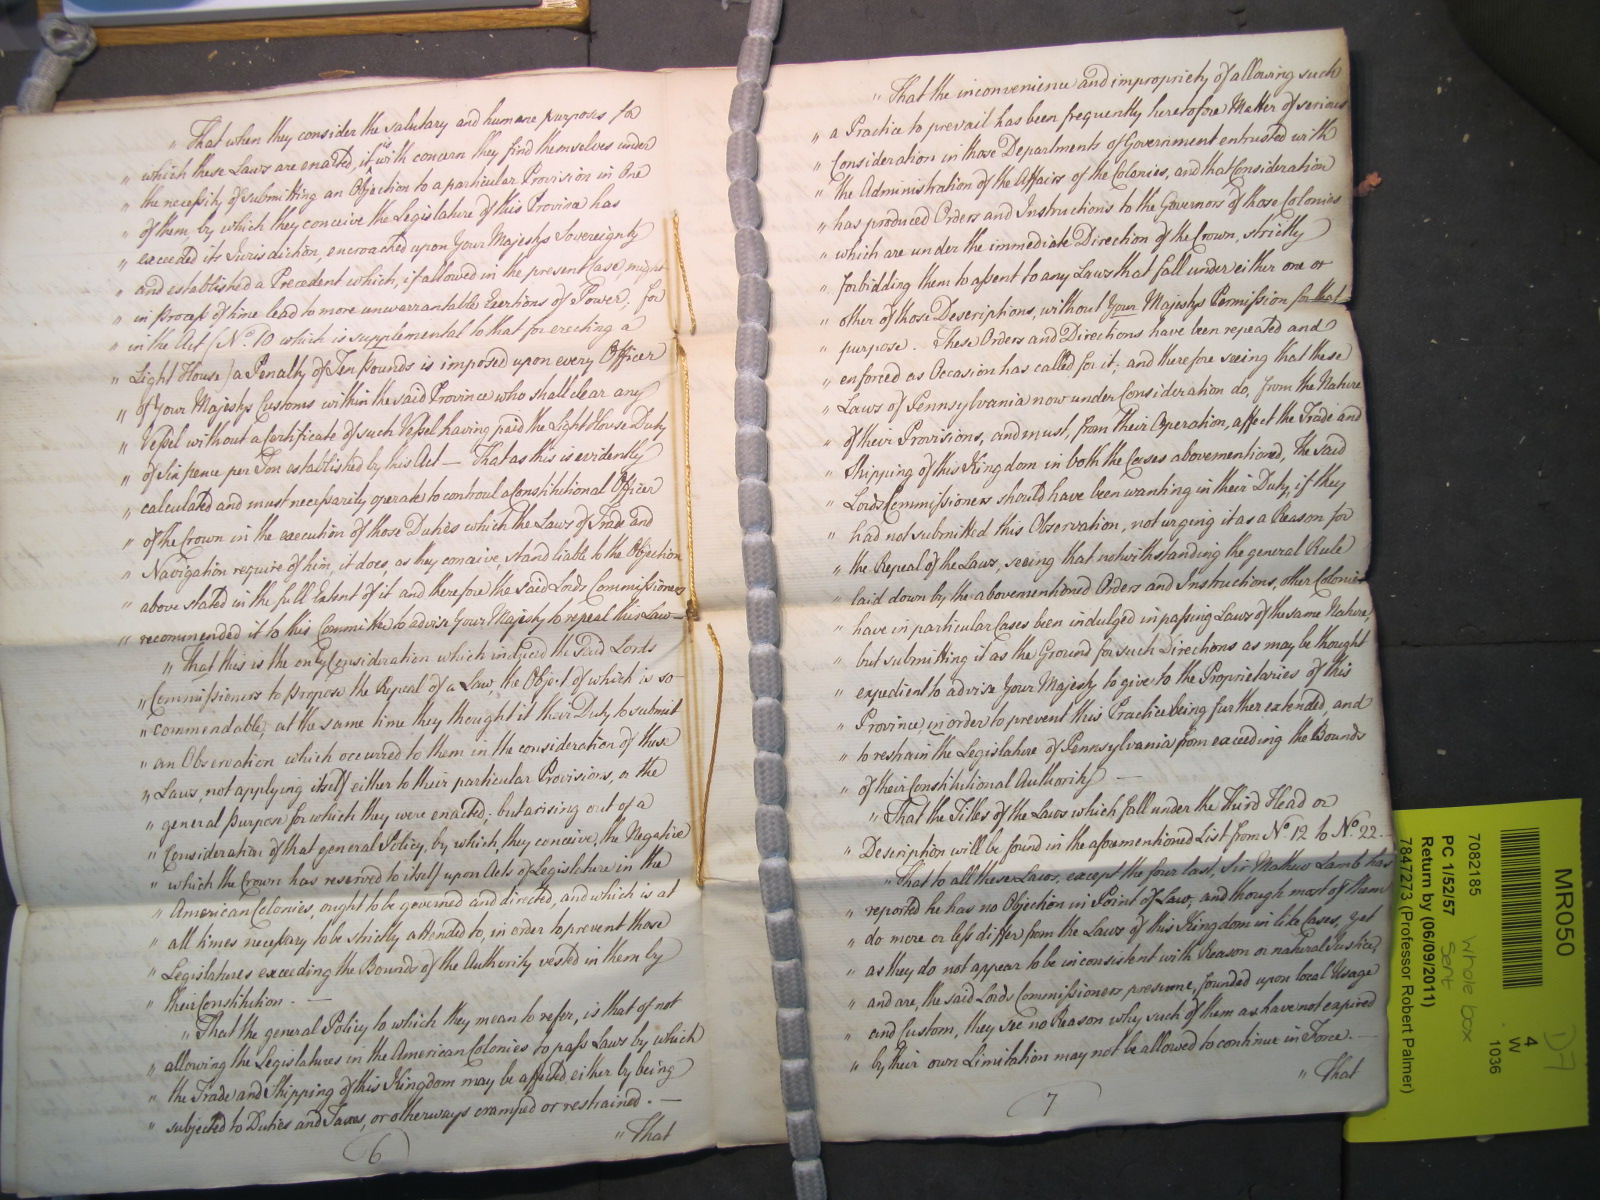 " That when they consider the salutary and humane purposes for
" which these Laws are enacted, it is with concern they find themselves under
" the necessity of submitting an Objection to a particular Provision in One
" of them, by which they conceive the Legislature of this Province has
" exceeded its Jurisdiction, encroached upon Your Majestys Sovereignty
" and established a Precedent which, if allowed in the present Case might
" in process of time lead to more unwarrantable Exertions of Power; for
" in the Act (No. 10 which is supplemental to that for erecting a
" Light House) a Penalty of Ten pounds is imposed upon every Officer
" of Your Majestys Customs within the said Province who shall clear any
" Vessel without a Certificate of such Vessel having paid the Light House Duty
" of Six pence per Ton established by this Act — That as this is evidently
" calculated and must necessarily operate to controul a Constitutional Officer
" of the Crown in the execution of those Duties which the Laws of Trade and
" Navigation require of him, it does, as they conceive, stand liable to the Objection
" above stated in the full Extent of it and therefore the said Lords Commissioners
" recommended it to this Committee to advise Your Majesty to repeal this Law —
" That this is the only Consideration which induced the said Lords
" Commissioners to propose the Repeal of a Law, the Object of which is so
" commendable; at the same time they thought it their Duty to submit
" an Observation which occurred to them in the consideration of these
" Laws, not applying itself either to their particular Provisions, or the
" general purpose for which they were enacted, but arising out of a
" Consideration of that general Policy, by which, they conceive, the Negative
" which the Crown has reserved to itself upon Acts of Legislature in the
" American Colonies, ought to be governed and directed, and which is at
" all times necessary to be strictly attended to, in order to prevent those
" Legislatures exceeding the Bounds of the Authority vested in them by
" their Constitution. —
" That the general Policy to which they mean to refer, is that of not
" allowing the Legislatures in the American Colonies to pass Laws by which
" the Trade and Shipping of this Kingdom may be affected either by being
" subjected to Duties and Taxes, or otherways cramped or restrained. —
" That
6
" That the inconvenience and impropriety of allowing such
" a Practice to prevail has been frequently heretofore Matter of serious
" Consideration in those Departments of Government entrusted with
" the Administration of the Affairs of the Colonies, and that Consideration
" has produced Orders and Instructions to the Governors of those Colonies
" which are under the immediate Direction of the Crown, strictly
" forbidding them to assent to any Laws that fall under either one or
" other of those Descriptions, without Your Majestys Permission for that
" purpose. These Orders and Directions have been repeated and
" enforced as Occasion has called for it; and therefore seeing that these
" Laws of Pennsylvania now under Consideration do, from the Nature
" of their Provisions, and must, from their Operation, affect the Trade and
" Shipping of this Kingdom in both the Cases abovementioned, the said
" Lords Commissioners should have been wanting in their Duty, if they
" had not submitted this Observation, not urging it as a Reason for
" the Repeal of the Laws, seeing that notwithstanding the general Rule
" laid down by the abovementioned Orders and Instructions, other Colonies
" have in particular Cases been indulged in passing Laws of the same Nature,
" but submitting it as the Ground for such Directions as may be thought
" expedient to advise Your Majesty to give to the Proprietaries of this
" Province, in order to prevent this Practice being further extended, and
" to restrain the Legislature of Pennsylvania from exceeding the Bounds
" of their Constitutional Authority —
" That the Titles of the Laws which fall under the Third Head or
" Description will be found in the aforementioned List from No. 12 to No. 22.
" That to all these Laws, except the four last, Sir Mathew Lamb has
" reported he has no Objection in Point of Law; and though most of them
" do more or less differ from the Laws of this Kingdom in like Cases, yet
" as they do not appear to be inconsistent with Reason or natural Justice,
" and are, the said Lords Commissioners presume, founded upon local Usage
" and Custom, they see no Reason why such of them as have not expired
" by their own Limitation may not be allowed to continue in Force. —
" That
7
MR050
4
W
1036
7082185
PC 1/52/57
Return by (06/09/2011)
7847273 (Professor Robert Palmer)
whole box
sent